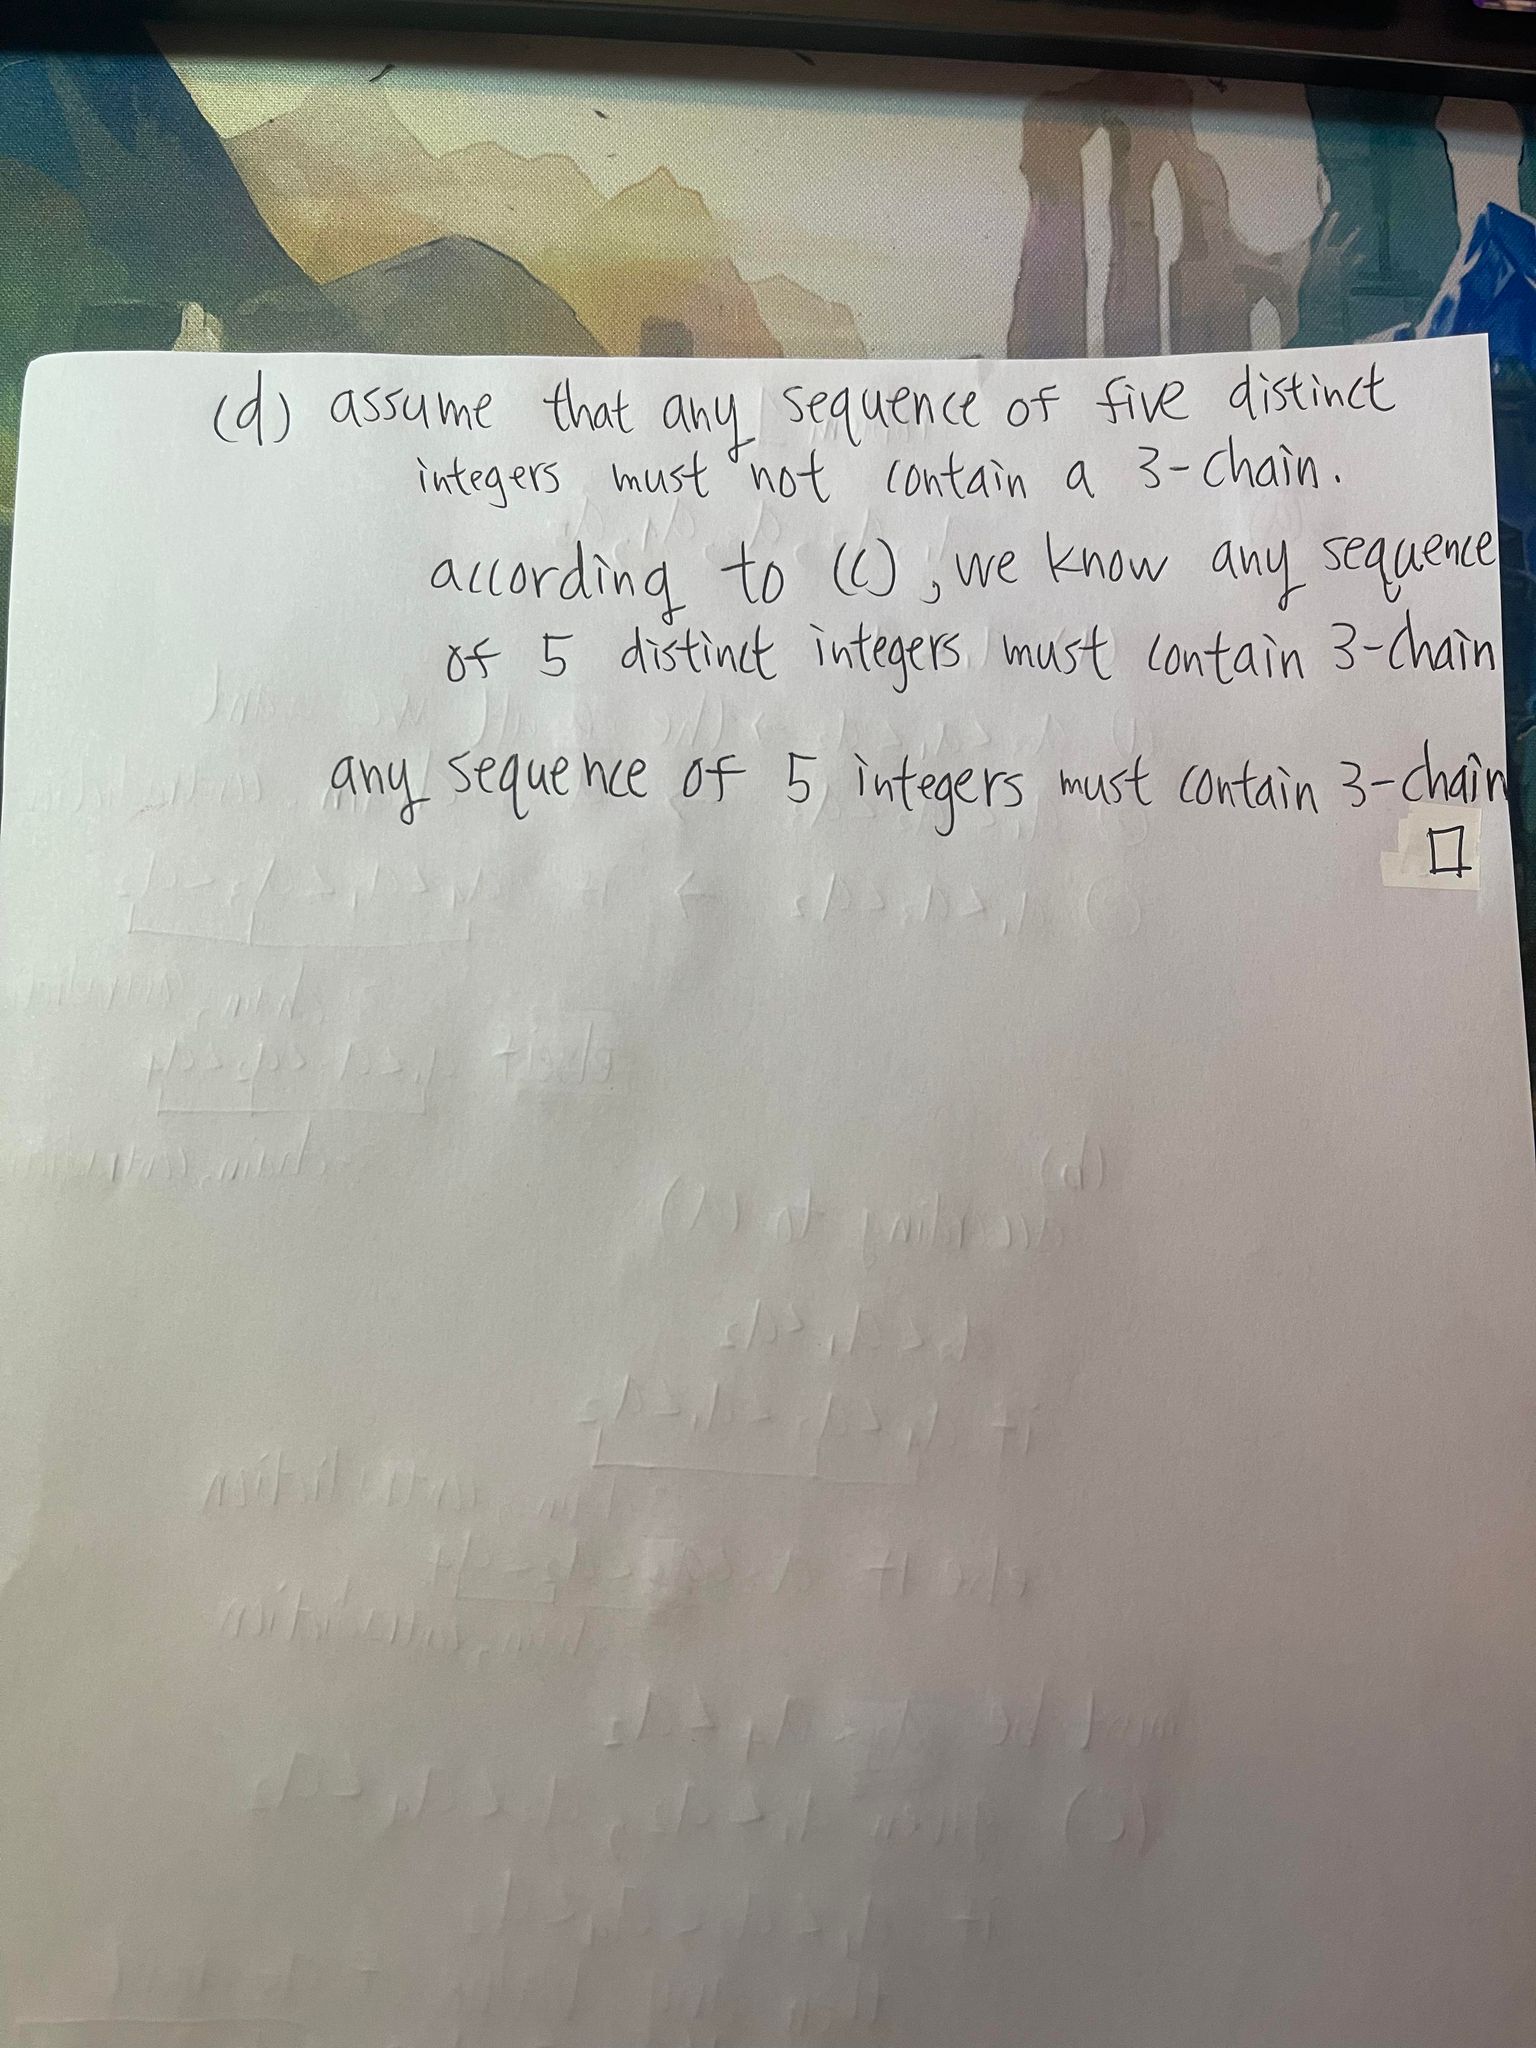 (d) assume that any sequence of five distinct
integers must not contain a 3-chain.
according to (c), we know any sequence
of 5 distinct integers must contain 3-chain
any sequence of 5 integers must contain 3-chain